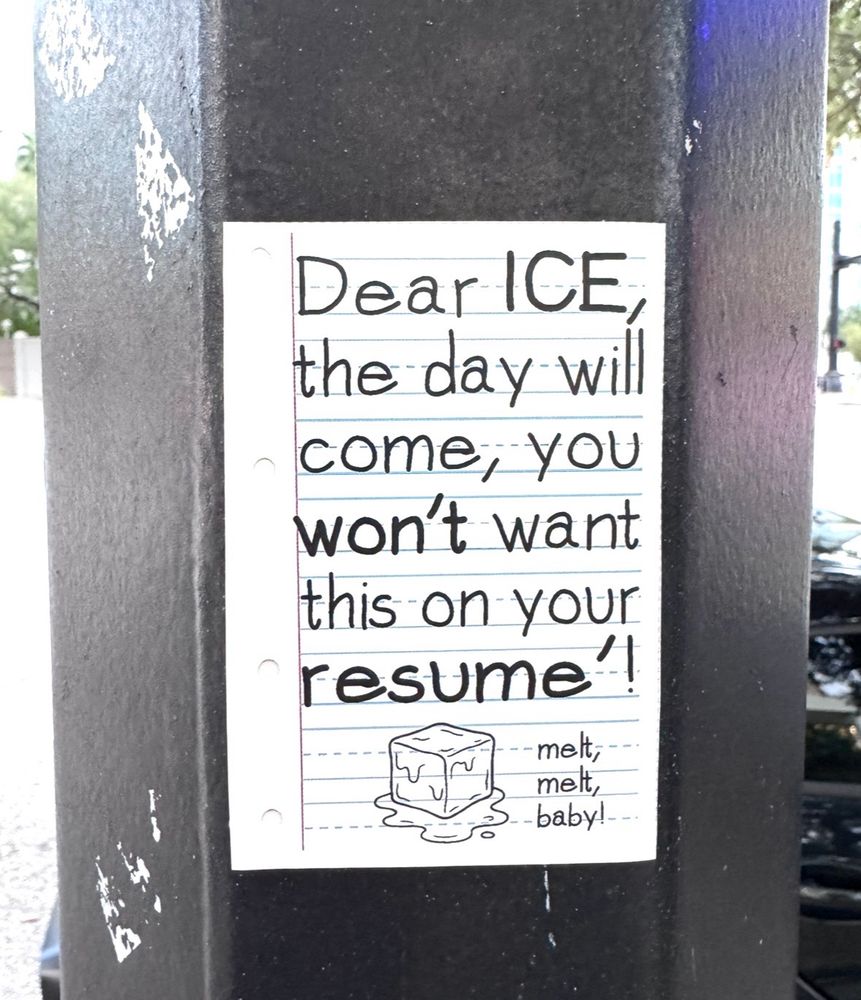 Dear ICE,
the day will
come, you
won't want
this on your
resume'!
melt,
melt,
baby!